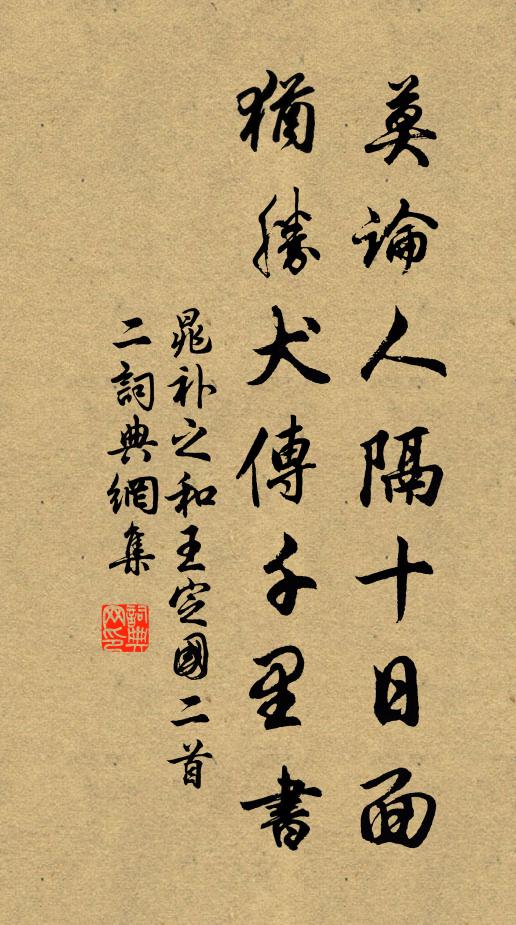 莫論人隔十日面
猶勝犬傳千里書
晁补之和王定國二首
二詞典網集
詞典網印